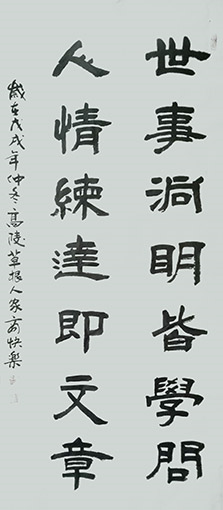 世事洞明皆學問
人情練達即文章
歲在戊戌年仲冬高陵草根人家方快樂